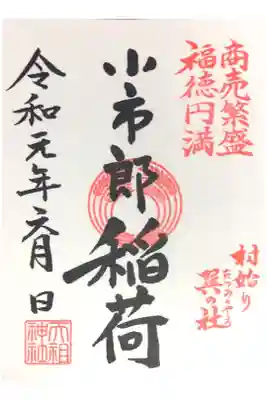 商売繁盛
福徳円満
村始り
巽の社
たつみのやしろ
小市郎稲荷
令和元年六月日
大祖神社